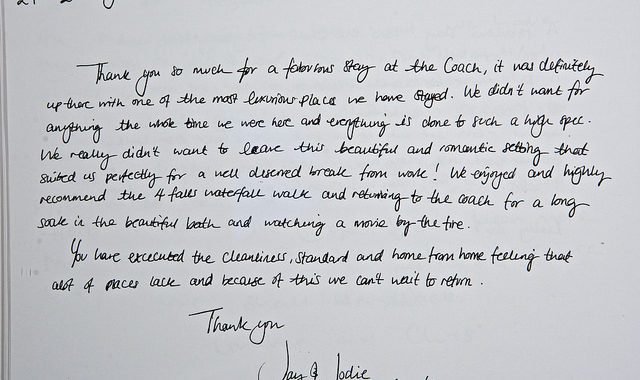 Thank you so much for a fabovious stay at the Coach, it was definitely
up there with one of the most luxurious places we have stayed. We didn't want for
anything the whole time we were here and everything is done to such a high spec.
We really didn't want to leave this beautiful and romantic setting that
suited us perfectly for a well deserved break from work! We enjoyed and highly
recommend the 4 falls waterfall walk and returning to the coach for a long
soak in the beautiful bath and watching a movie by the fire.
You have excecuted the cleanliness, standard and home from home feeling that
alot of places lack and because of this we can't wait to return.
Thank you
Jay & Jodie